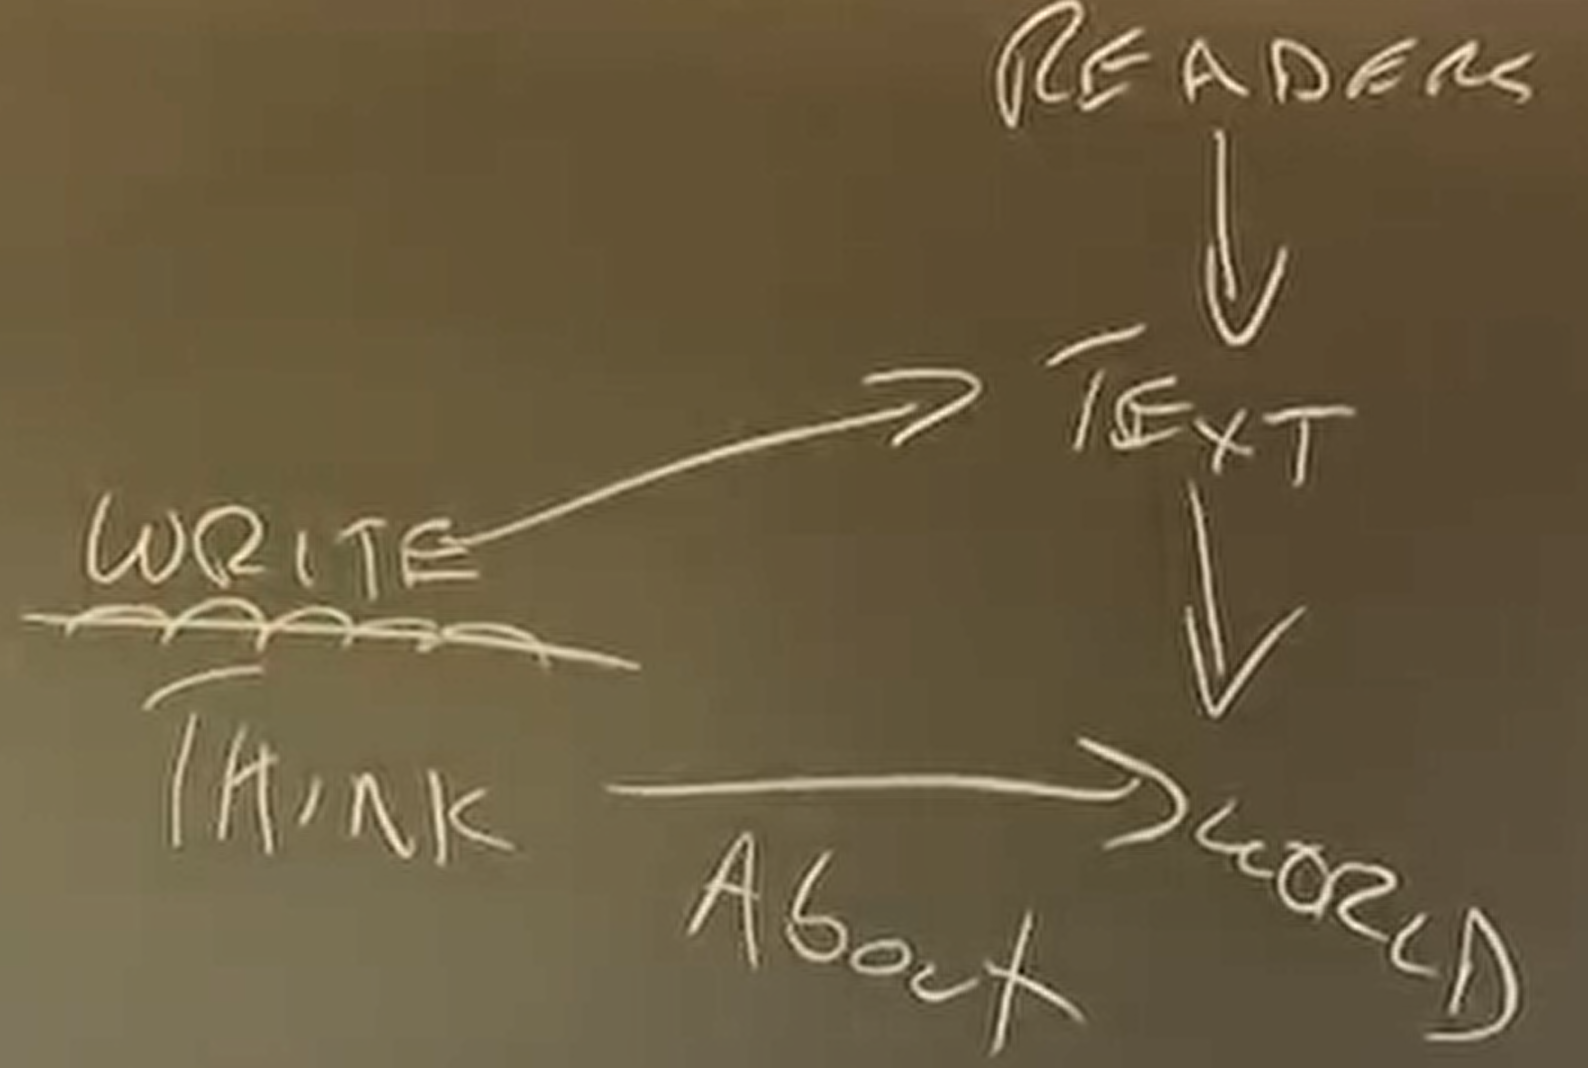 READERS
TEXT
WRITE
THINK
About
WORLD